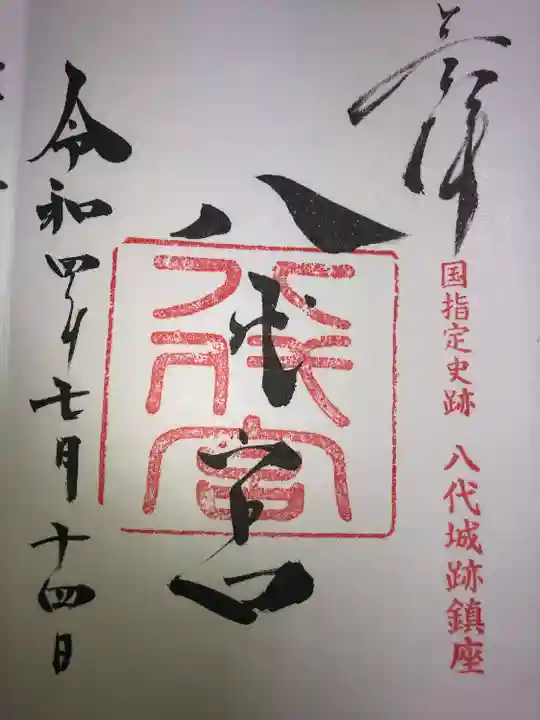 奉拝
国指定史跡 八代城跡鎮座
八代宮
八代宮
令和四年七月十四日